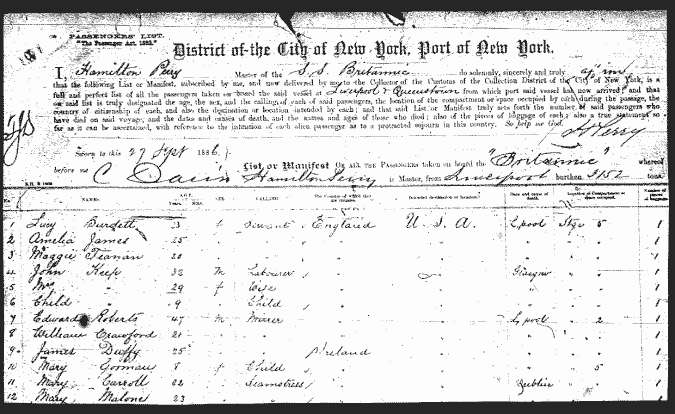 PASSENGERS' LIST.
"The Passenger Act, 1882."
District of the City of New York, Port of New York.
I, Hamilton Perry Master of the S.S. Britannic do solemnly, sincerely and truly
that the following List or Manifest, subscribed by me, and now delivered by me to the Collector of the Customs of the Collection District of the City of New York, is a
full and perfect list of all the passengers taken on board the said vessel at Liverpool & Queenstown from which port said vessel has now arrived; and that
on said list is truly designated the age, the sex, and the calling of each of said passengers, the location of the compartment or space occupied by each during the passage, the
country of citizenship of each, and also the destination or location intended by each; and that said List or Manifest truly sets forth the number of said passengers who
have died on said voyage, and the dates and causes of death, and the names and ages of those who died; also of the pieces of luggage of each; also a true statement so
far as it can be ascertained, with reference to the intention of each alien passenger as to a protracted sojourn in this country. So help me God.
H Perry
Sworn to this 27 Sept 1886
before me
List or Manifest OF ALL THE PASSENGERS taken on board the "Britannic" whereof
Hamilton Perry is Master, from Liverpool burthen 3152 tons.
No. NAMES. AGE. Years Mths. SEX CALLING.
1 Lucy Burdett 23 f Servant England U.S.A. L'pool Stge 5 1
2 Amelia James 25 " " " 1
3 Maggie 20 " " " 1
4 John Keep 32 m Labourer " Glasgow 1
5 Mrs " 29 f Wife " 1
6 Child " 9 Child " 1
7 Edward Roberts 47 m Miner " L'pool " 2 1
8 William Crawford 21 " " " 1
9 James Duffy 25 " " Ireland 1
10 Mary Gorman 8 f Child " 5 1
11 Mary Carroll 22 Seamstress " Dublin 1
12 Mary Malone 23 " " 1